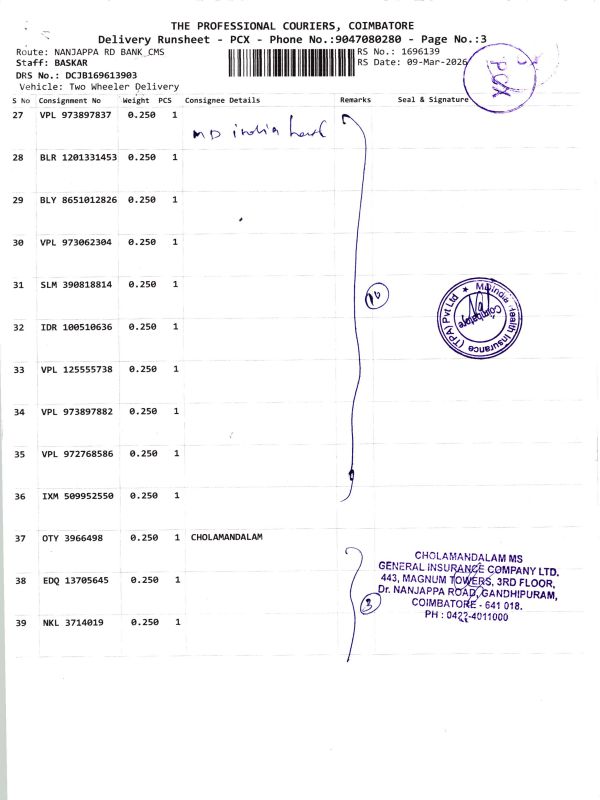 THE PROFESSIONAL COURIERS, COIMBATORE
Delivery Runsheet - PCX - Phone No.:9047080280 - Page No.:3
Route: NANJAPPA RD BANK_CMS
RS No.: 1696139
Staff: BASKAR
RS Date: 09-Mar-2026
DRS No.: DCJB169613903
Vehicle: Two Wheeler Delivery
PCX
S No Consignment No Weight PCS Consignee Details Remarks Seal & Signature
27 VPL 973897837 0.250 1
MD india
28 BLR 1201331453 0.250 1
29 BLY 8651012826 0.250 1
30 VPL 973062304 0.250 1
31 SLM 390818814 0.250 1
10
MDindia Health Insurance (TPA) Pvt Ltd
Coimbatore
32 IDR 100510636 0.250 1
33 VPL 125555738 0.250 1
34 VPL 973897882 0.250 1
35 VPL 972768586 0.250 1
36 IXM 509952550 0.250 1
37 OTY 3966498 0.250 1 CHOLAMANDALAM
38 EDQ 13705645 0.250 1
39 NKL 3714019 0.250 1
3
CHOLAMANDALAM MS
GENERAL INSURANCE COMPANY LTD.
443, MAGNUM TOWERS, 3RD FLOOR,
Dr. NANJAPPA ROAD, GANDHIPURAM,
COIMBATORE - 641 018.
PH : 0422-4011000